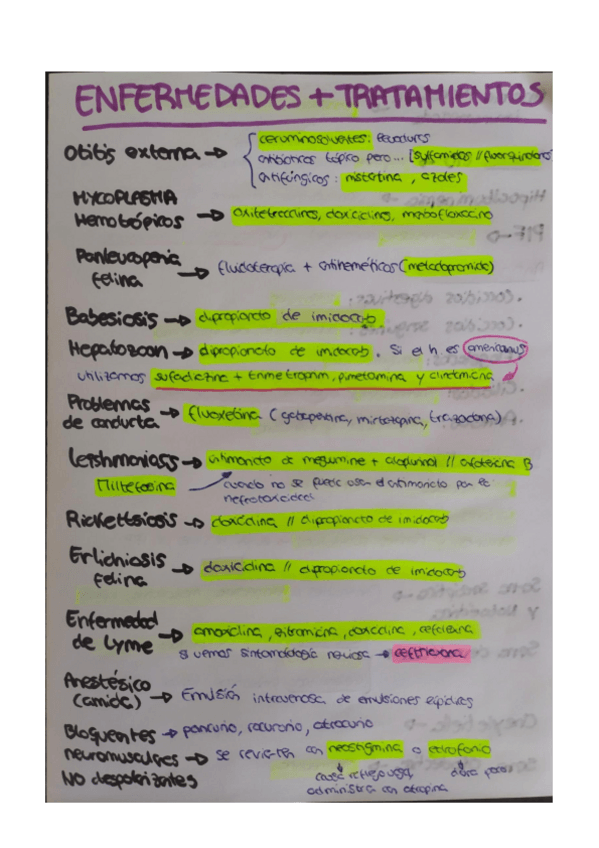 ENFERMEDADES + TRATAMIENTOS
Otitis externa → ceruminosolventes:
antibióticos tópico pero... [sulfamidas // fluorquinolonas]
antifúngicos: nistatina, azoles
MYCOPLASMA
Hemotrópicos → oxitetraciclinas, doxiciclina, mabofloxacino
Panleucopenia
felina → fluidoterapia + antieméticos (metoclopramida)
Babesiosis → dipropionato de imidocarb
Hepatozoon → dipropionato de imidocarb. Si el h es americanus
utilizamos sulfadiazina + trimetroprim, pirimetamina y clindamicina
Problemas
de conducta → fluoxetina (gabapentina, mirtazapina, trazodona)
Leishmaniasis → antimoniato de meglumine + alopurinol // anfotericina B
Miltefosina → cuando no se puede usar el antimoniato por el
nefrotoxicidad
Rickettsiosis → doxiciclina // dipropionato de imidocarb
Erlichiosis
felina → doxiciclina // dipropionato de imidocarb
Enfermedad
de Lyme → amoxicilina, azitromicina, doxiciclina, cefalexina
si vemos sintomatología nerviosa → ceftriaxona
Anestésico
(amida) → Emulsión intravenosa de emulsiones lipídicas
Bloquentes → pancuronio, rocuronio, atracurio
neuromusculares → se revierten con neostigmina o edrofonio
NO despolarizantes
causa reflejo vagal, dura poco
administrar con atropina